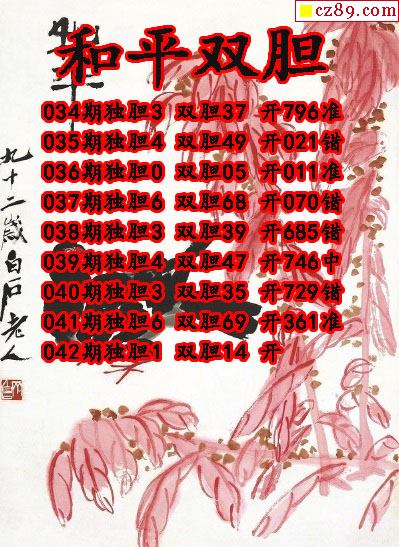 cz89.com
和平双胆
034期独胆3 双胆37 开796准
035期独胆4 双胆49 开021错
036期独胆0 双胆05 开011准
037期独胆6 双胆68 开070错
038期独胆3 双胆39 开685错
039期独胆4 双胆47 开746中
040期独胆3 双胆35 开729错
041期独胆6 双胆69 开361准
042期独胆1 双胆14 开
九十二岁白石老人